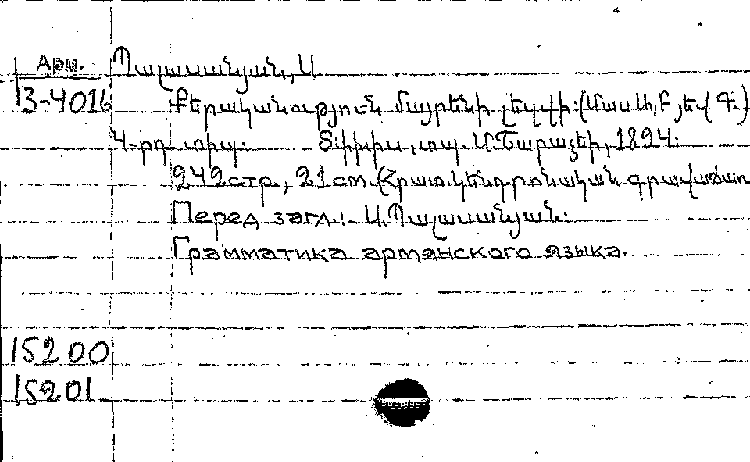 Арм.
3-4016
Պալասանյան, Ս
Քերականություն մայրենի լեզվի: (Մասն Բ յեվ Գ.)
4-րդ տիպ: Տիֆլիս, տպ. Մ. Շարաձեի, 1894:
242 стр., 21 cm. (Հրատ. Կենդրոնական գրավաճառ
Перед загл.: Ս. Պալասանյան:
Грамматика армянского языка.
15200
15201